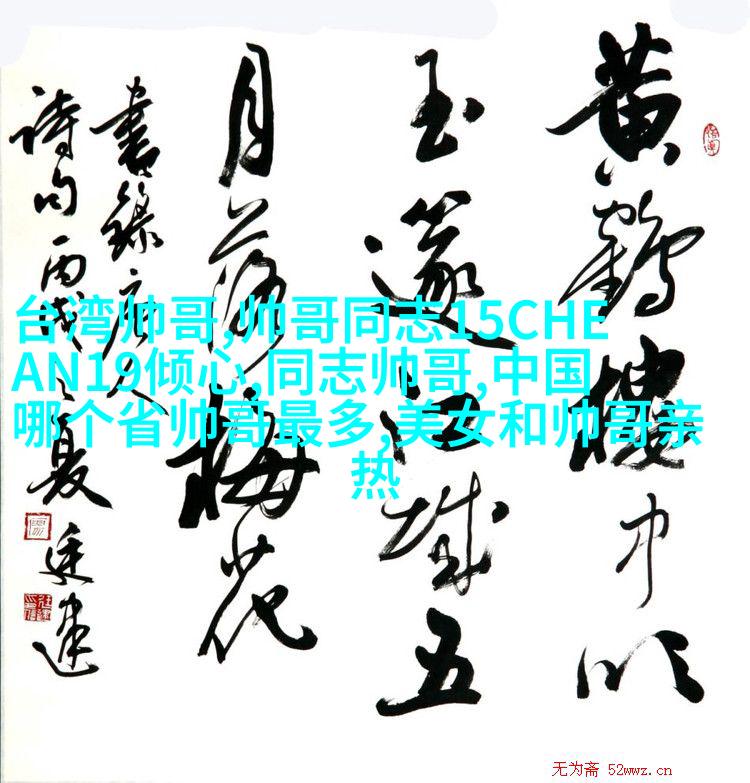 黄鶴樓中吹
玉篴江城五
月落梅花
書録唐人
詩句丙戌之夏
台湾帅哥,帅哥同志15CHE
AN19倾心,同志帅哥,中国
哪个省帅哥最多,美女和帅哥亲
热
无为斋 52wwz.cn